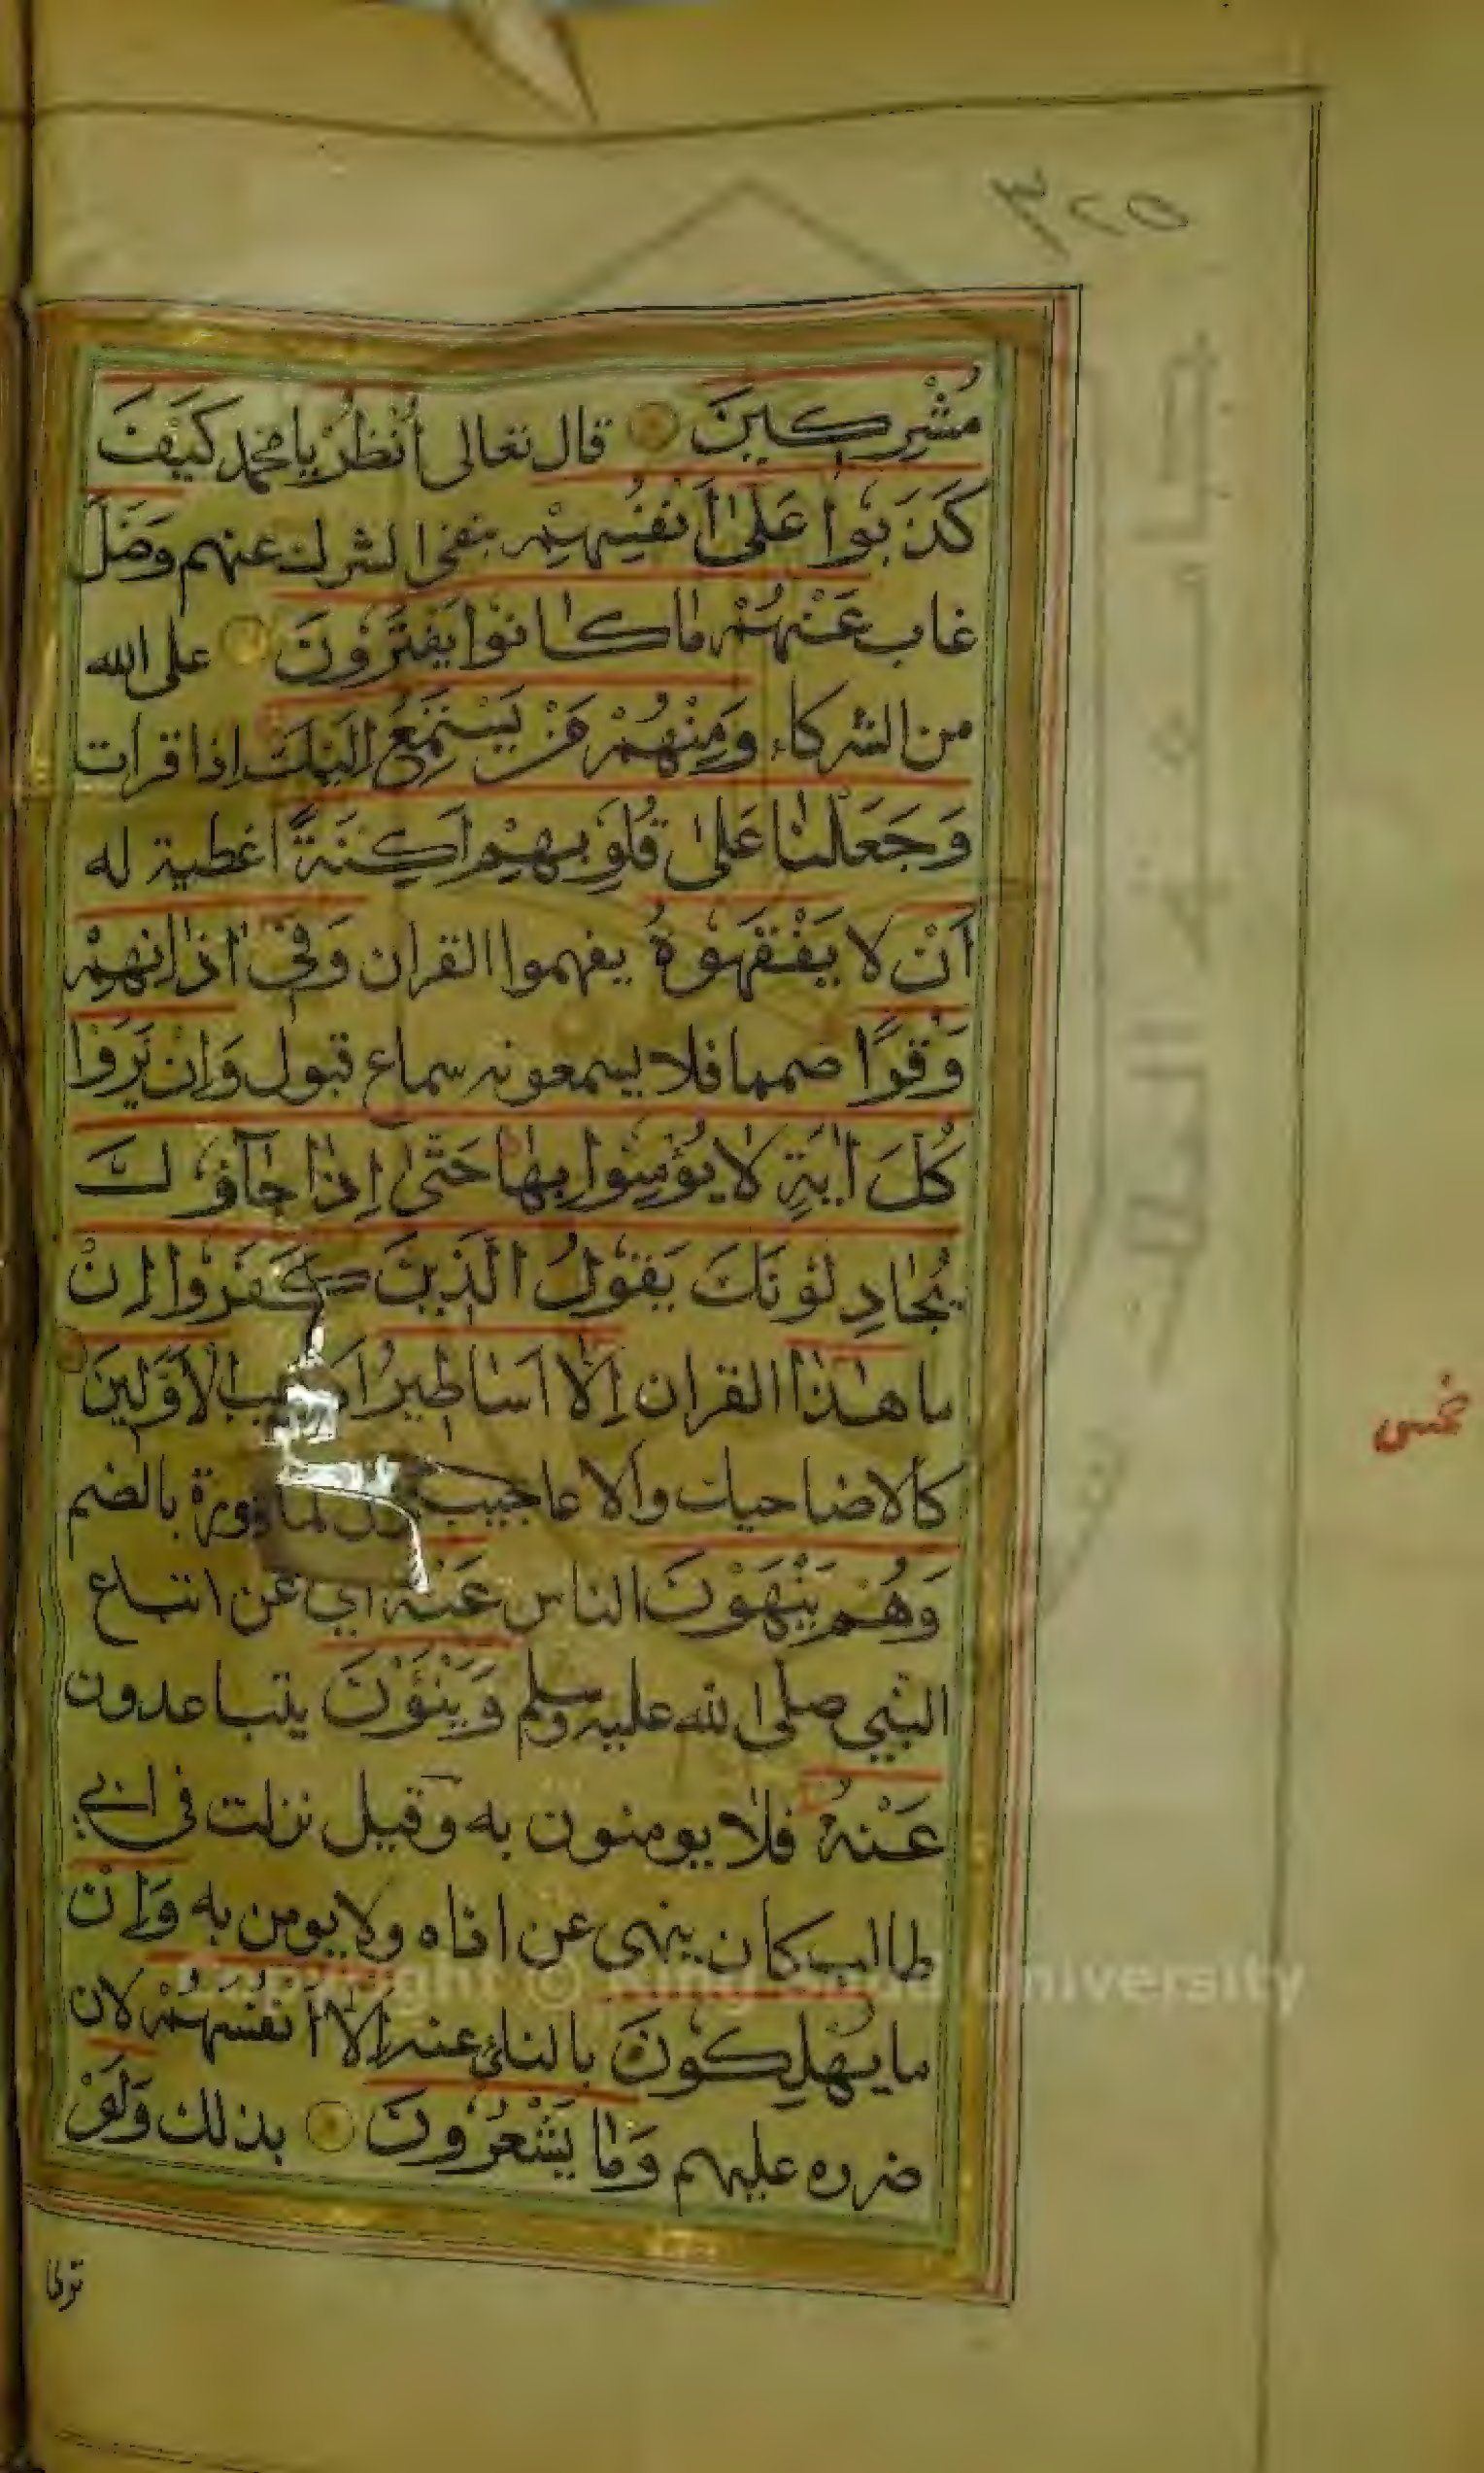 ٣٢٥
مُشْرِكِينَ قال تعالى أُنْظُرْ يا محمد كَيْفَ
كَذَبُوا عَلَىٰ أَنْفُسِهِمْ بنفى الشرك عنهم وَضَلَّ
غاب عَنْهُمْ مَا كَانُوا يَفْتَرُونَ على الله
من الشركاء وَمِنْهُمْ مَنْ يَسْتَمِعُ إِلَيْكَ اذا قرات
وَجَعَلْنَا عَلَىٰ قُلُوبِهِمْ أَكِنَّةً اغطية له
أَنْ لا يَفْقَهُوهُ يفهموا القران وَفِي آذَانِهِمْ
وَقْرًا صمما فلا يسمعونه سماع قبول وَإِنْ يَرَوْا
كُلَّ آيَةٍ لَا يُؤْمِنُوا بِهَا حَتَّىٰ إِذَا جَاؤُكَ
يُجَادِلُونَكَ يَقُولُ الَّذِينَ كَفَرُوا إِنْ
ما هَذَا القران إِلَّا أَسَاطِيرُ الْأَوَّلِينَ
كالاضاحيك والاعاجيب بالضم
وَهُمْ يَنْهَوْنَ الناس عَنْهُ اي عن اتباع
النبي صلى الله عليه وسلم وَيَنْؤَنَ يتباعدون
عَنْهُ فلا يومنون به وقيل نزلت في ابي
طالب كان ينهى عن اذاه ولا يومن به وَإِنْ
ما يُهْلِكُونَ بالنائ عنه إِلَّا أَنْفُسَهُمْ لان
ضرره عليهم وَمَا يَشْعُرُونَ بذلك وَلَوْ
ترى
Copyright © King Saud University